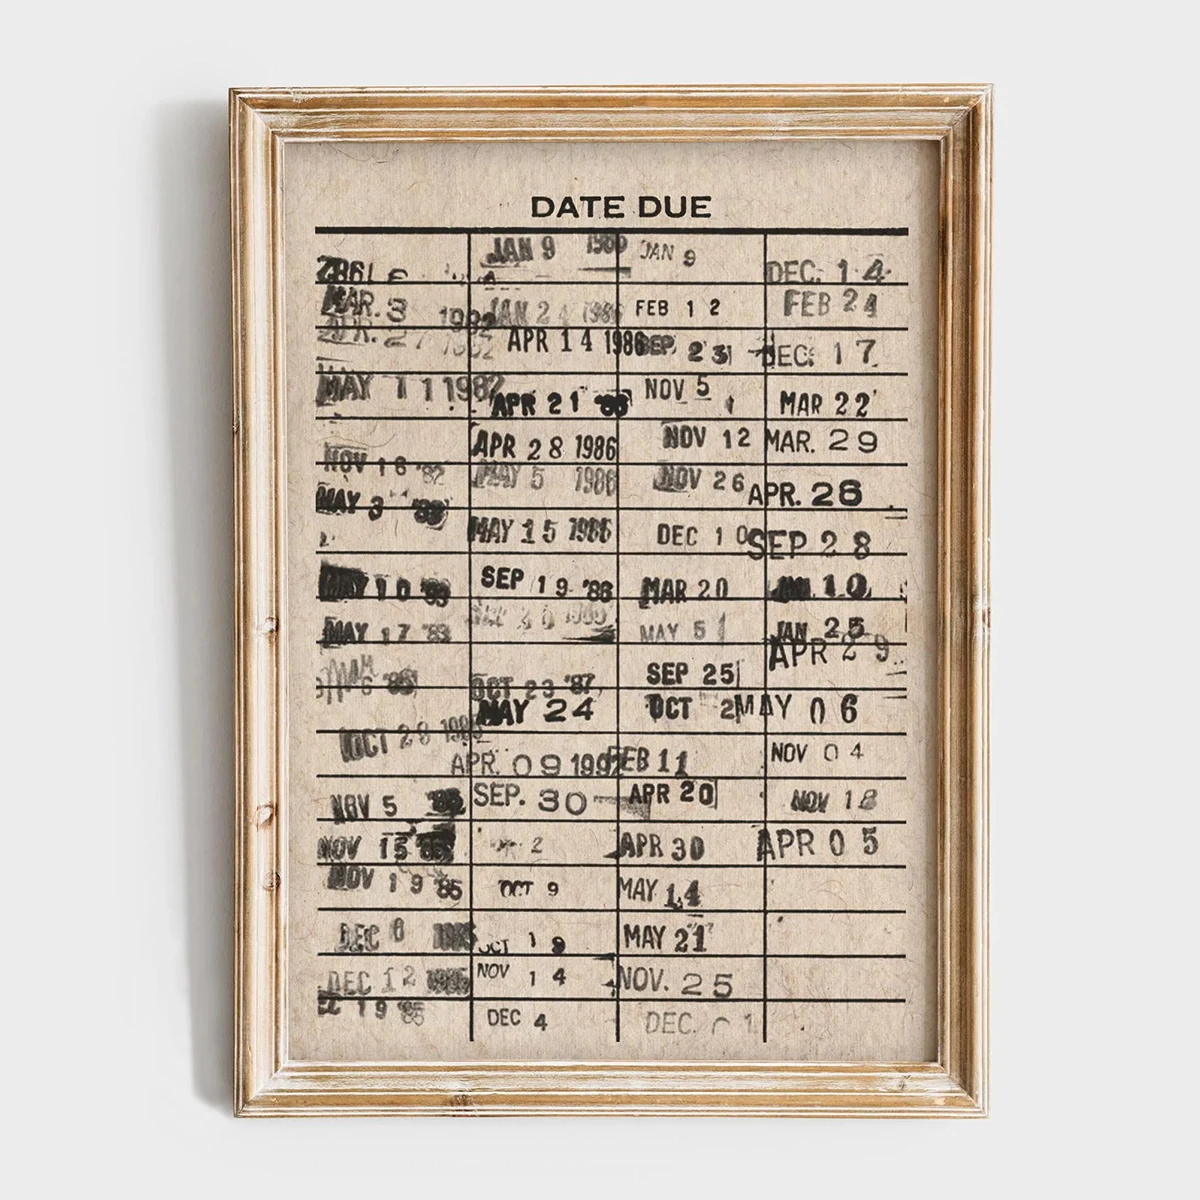 DATE DUE
MAR. 3 1982
APR. 27 1982
MAY 11 1982
NOV 16 '82
MAY 3 '83
MAY 10 '83
MAY 17 '83
OCT 28 198
NOV 5
NOV 15 '85
NOV 19 '85
DEC 6 1985
DEC 12 1985
EC 19 '85
JAN 9 1986
JAN 24 1986
APR 14 1986
APR 21 '86
APR 28 1986
MAY 5 1986
MAY 15 1986
SEP 19 '86
OCT 23 '87
MAY 24
APR. 09 1992
SEP. 30
2
OCT 9
OCT 19
NOV 14
DEC 4
JAN 9
FEB 12
SEP 23
NOV 5
NOV 12
NOV 26
DEC 10
MAR 20
MAY 5
SEP 25
OCT 2
FEB 11
APR 20
APR 30
MAY 14
MAY 21
NOV. 25
DEC. 1
DEC. 14
FEB 24
DEC. 17
MAR 22
MAR. 29
APR. 26
SEP 28
JAN 10
JAN 25
APR 29
MAY 06
NOV 04
NOV 18
APR 05